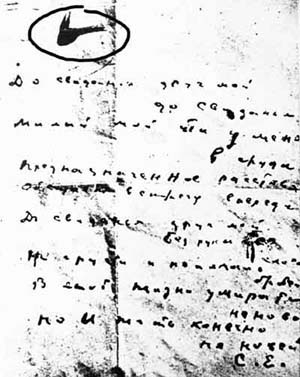 До свиданья друг мой
до свиданья
Милый мой ты у меня
в груди
Предназначенное
Обещает встречу впереди
До свиданья друг мой
без руки
Не грусти и
В этой жизни умирать
не ново
Но и жить конечно
не новей
С. Е.